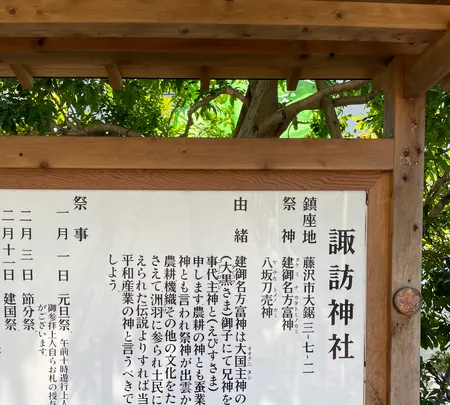 諏訪神社
鎮座地　藤沢市大鋸三-七-二
祭　神　建御名方富神
八坂刀売神
由　緒　建御名方富神は大国主神の
(大黒さま)御子にて兄神を
事代主神と(えびすさま)
申します農耕の神とも蚕業
神とも言われ祭神が出雲か
さえて洲羽に参られ土民に
農耕機織その他の文化をた
えられた伝説よりすれば当
平和産業の神と言うべきで
しょう
祭　事
一月一日　元旦祭、午前十時遊行上人
御参拝上人自らお札の授与
がございます。
二月三日　節分祭
二月十一日　建国祭